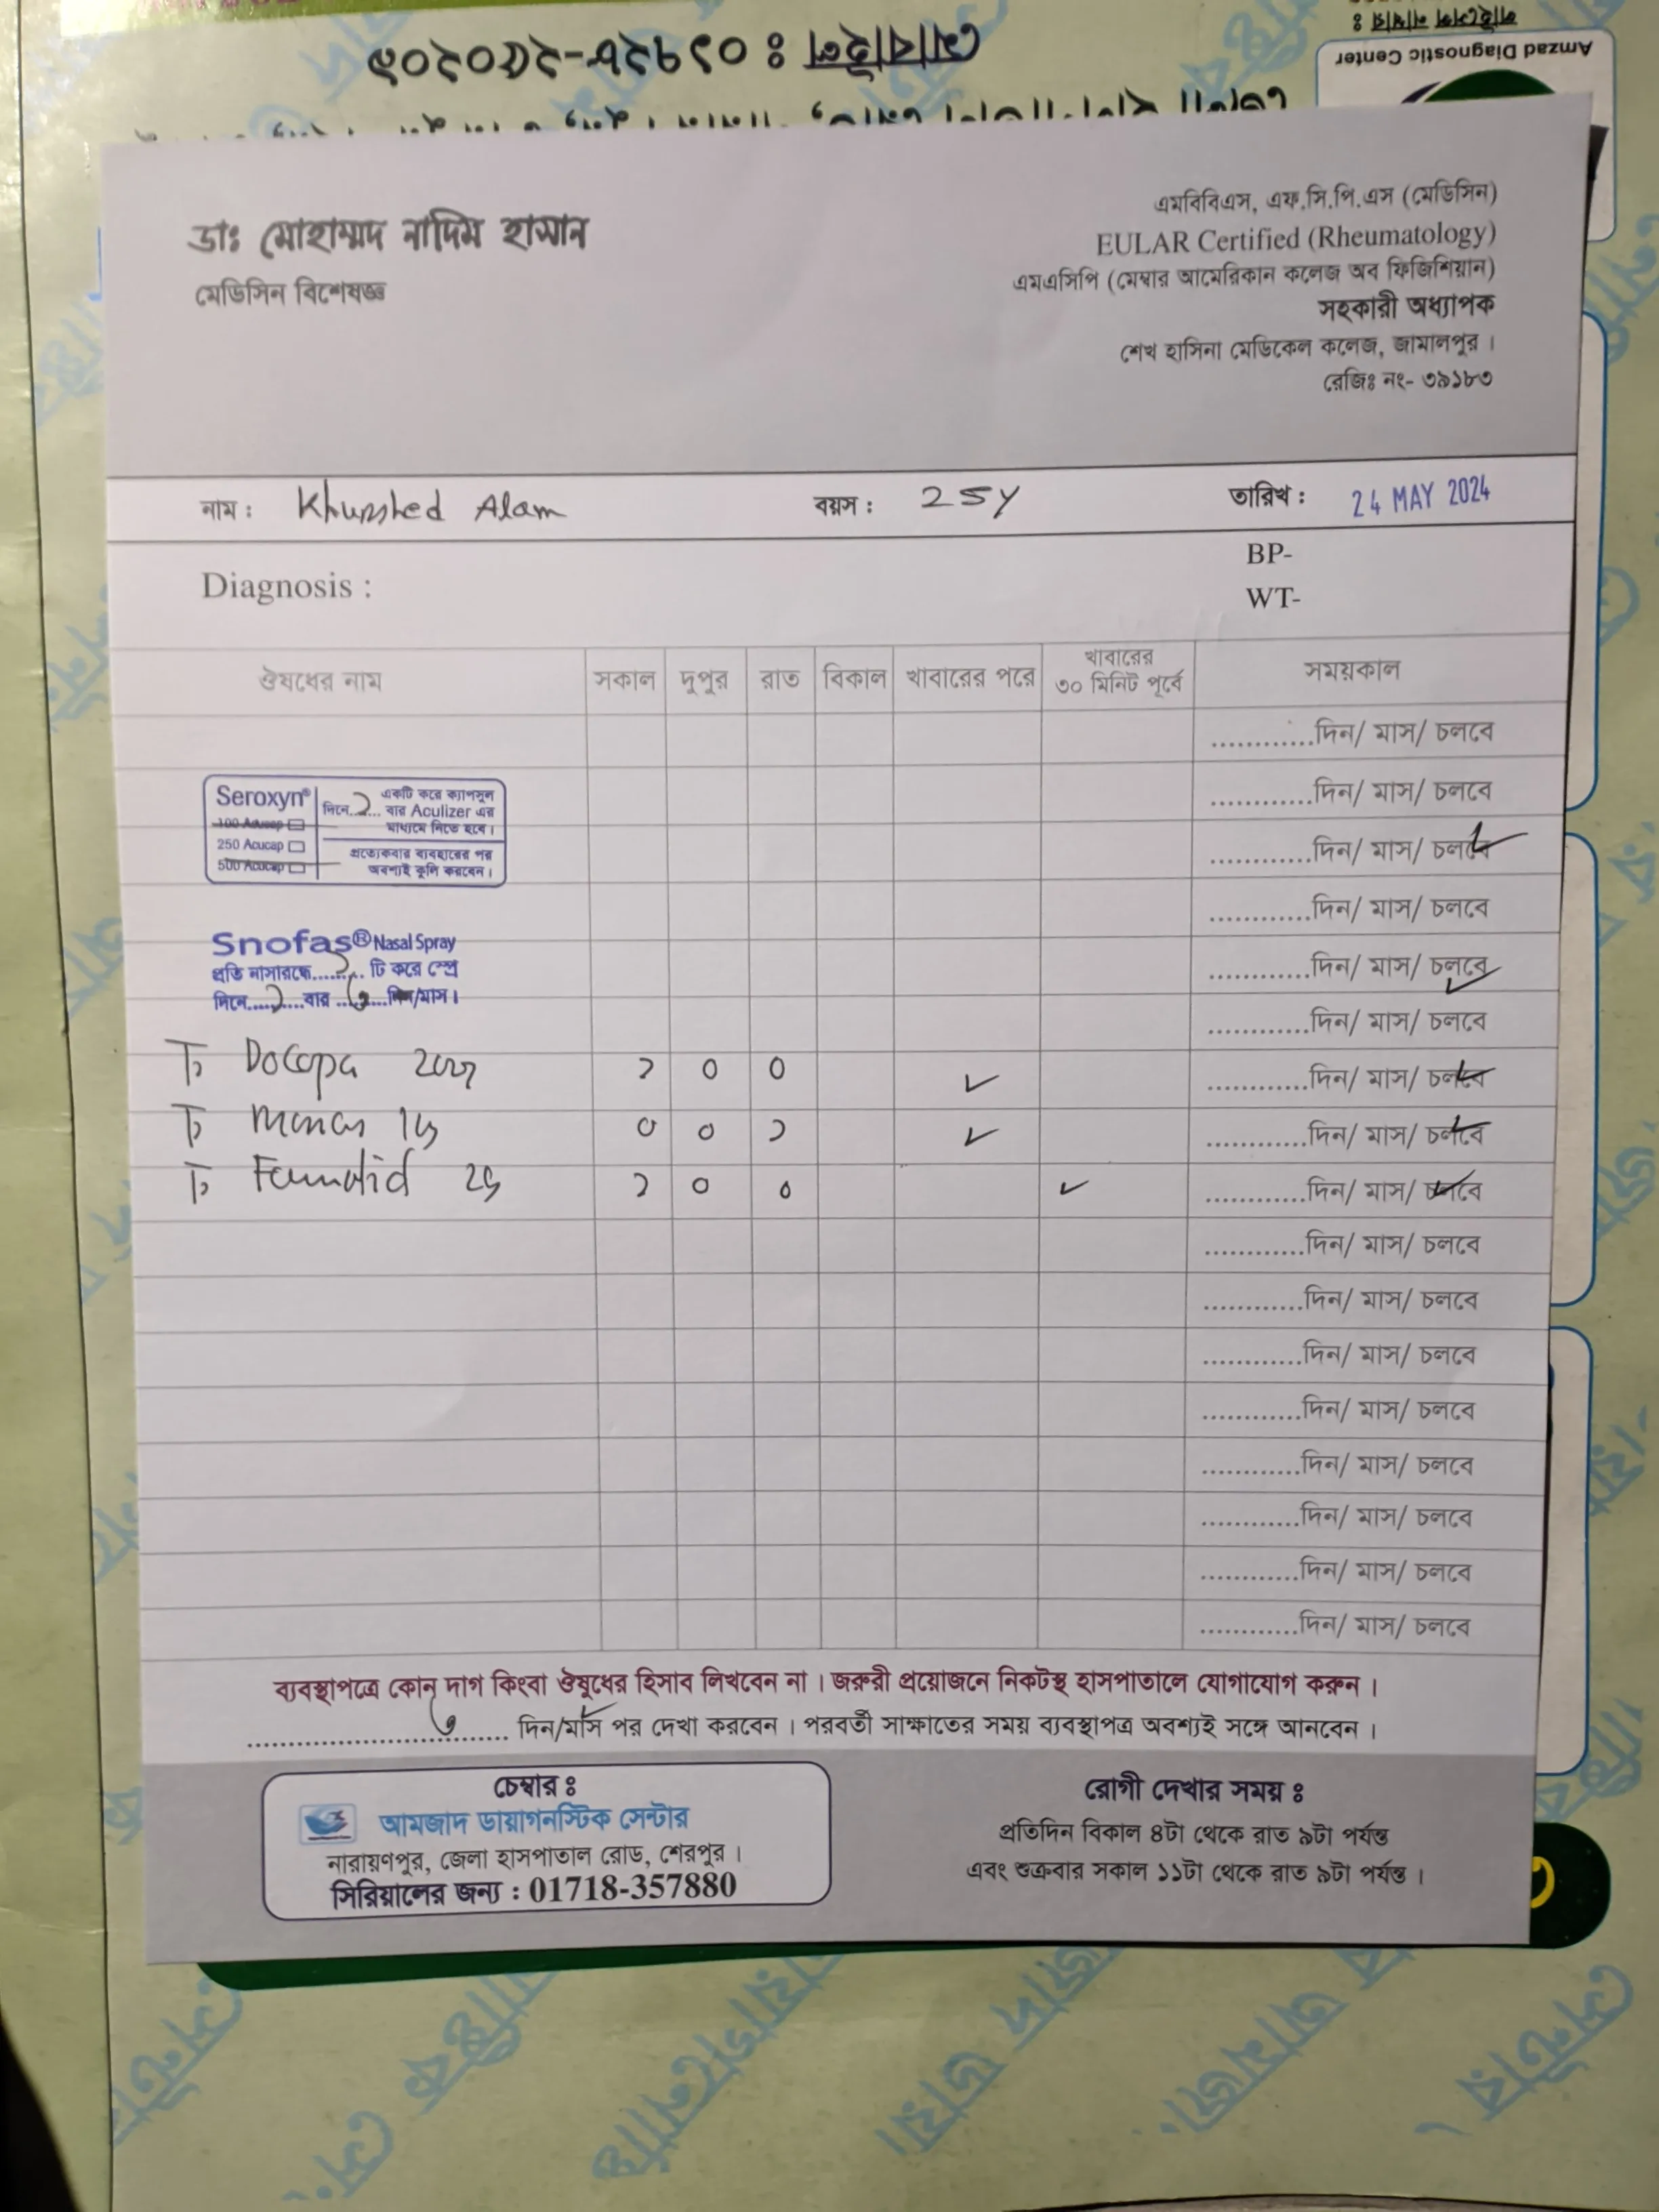 লাইসেন্স নাম্বার :
Amzad Diagnostic Center
মোবাইল : ০১৭২৮-২৫০২০১
ডাঃ মোহাম্মদ নাদিম হাসান
মেডিসিন বিশেষজ্ঞ
এমবিবিএস, এফ.সি.পি.এস (মেডিসিন)
EULAR Certified (Rheumatology)
এমএসিপি (মেম্বার আমেরিকান কলেজ অব ফিজিশিয়ান)
সহকারী অধ্যাপক
শেখ হাসিনা মেডিকেল কলেজ, জামালপুর।
রেজিঃ নং- ৩৯১৮৩
নাম : Khurshed Alam বয়স : 25y তারিখ : 24 MAY 2024
Diagnosis :
BP-
WT-
ঔষধের নাম সকাল দুপুর রাত বিকাল খাবারের পরে খাবারের ৩০ মিনিট পূর্বে সময়কাল
............দিন/ মাস/ চলবে
............দিন/ মাস/ চলবে
Seroxyn®
100 Acucap
250 Acucap
500 Acucap
একটি করে ক্যাপসুল
দিনে..২.. বার Aculizer এর
মাধ্যমে নিতে হবে।
প্রত্যেকবার ব্যবহারের পর
অবশ্যই কুলি করবেন।
............দিন/ মাস/ চলবে
............দিন/ মাস/ চলবে
Snofas® Nasal Spray
প্রতি নাসারন্ধ্রে...... টি করে স্প্রে
দিনে.....২....বার ..৬...দিন/মাস।
............দিন/ মাস/ চলবে
............দিন/ মাস/ চলবে
T Docopa 200 ১ 0 0 ✓ ............দিন/ মাস/ চলবে
T Monas 10 0 0 ১ ✓ ............দিন/ মাস/ চলবে
T Famotid 20 ১ 0 0 ✓ ............দিন/ মাস/ চলবে
............দিন/ মাস/ চলবে
............দিন/ মাস/ চলবে
............দিন/ মাস/ চলবে
............দিন/ মাস/ চলবে
............দিন/ মাস/ চলবে
............দিন/ মাস/ চলবে
............দিন/ মাস/ চলবে
............দিন/ মাস/ চলবে
ব্যবস্থাপত্রে কোন দাগ কিংবা ঔষুধের হিসাব লিখবেন না। জরুরী প্রয়োজনে নিকটস্থ হাসপাতালে যোগাযোগ করুন।
............৬............ দিন/মাস পর দেখা করবেন। পরবর্তী সাক্ষাতের সময় ব্যবস্থাপত্র অবশ্যই সঙ্গে আনবেন।
চেম্বার :
আমজাদ ডায়াগনস্টিক সেন্টার
নারায়ণপুর, জেলা হাসপাতাল রোড, শেরপুর।
সিরিয়ালের জন্য : 01718-357880
রোগী দেখার সময় :
প্রতিদিন বিকাল ৪টা থেকে রাত ৯টা পর্যন্ত
এবং শুক্রবার সকাল ১১টা থেকে রাত ৯টা পর্যন্ত।